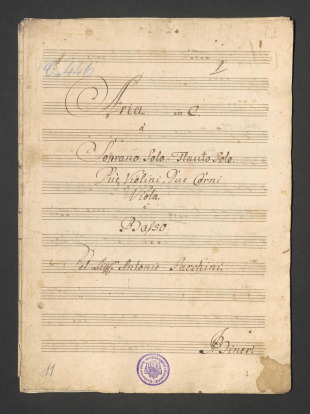 4° 446
Aria in C.
à
Soprano Solo Flauto Solo
Due Violini, Due Corni
Viola
è
Basso.
Del Sig: Antonio Sacchini
11